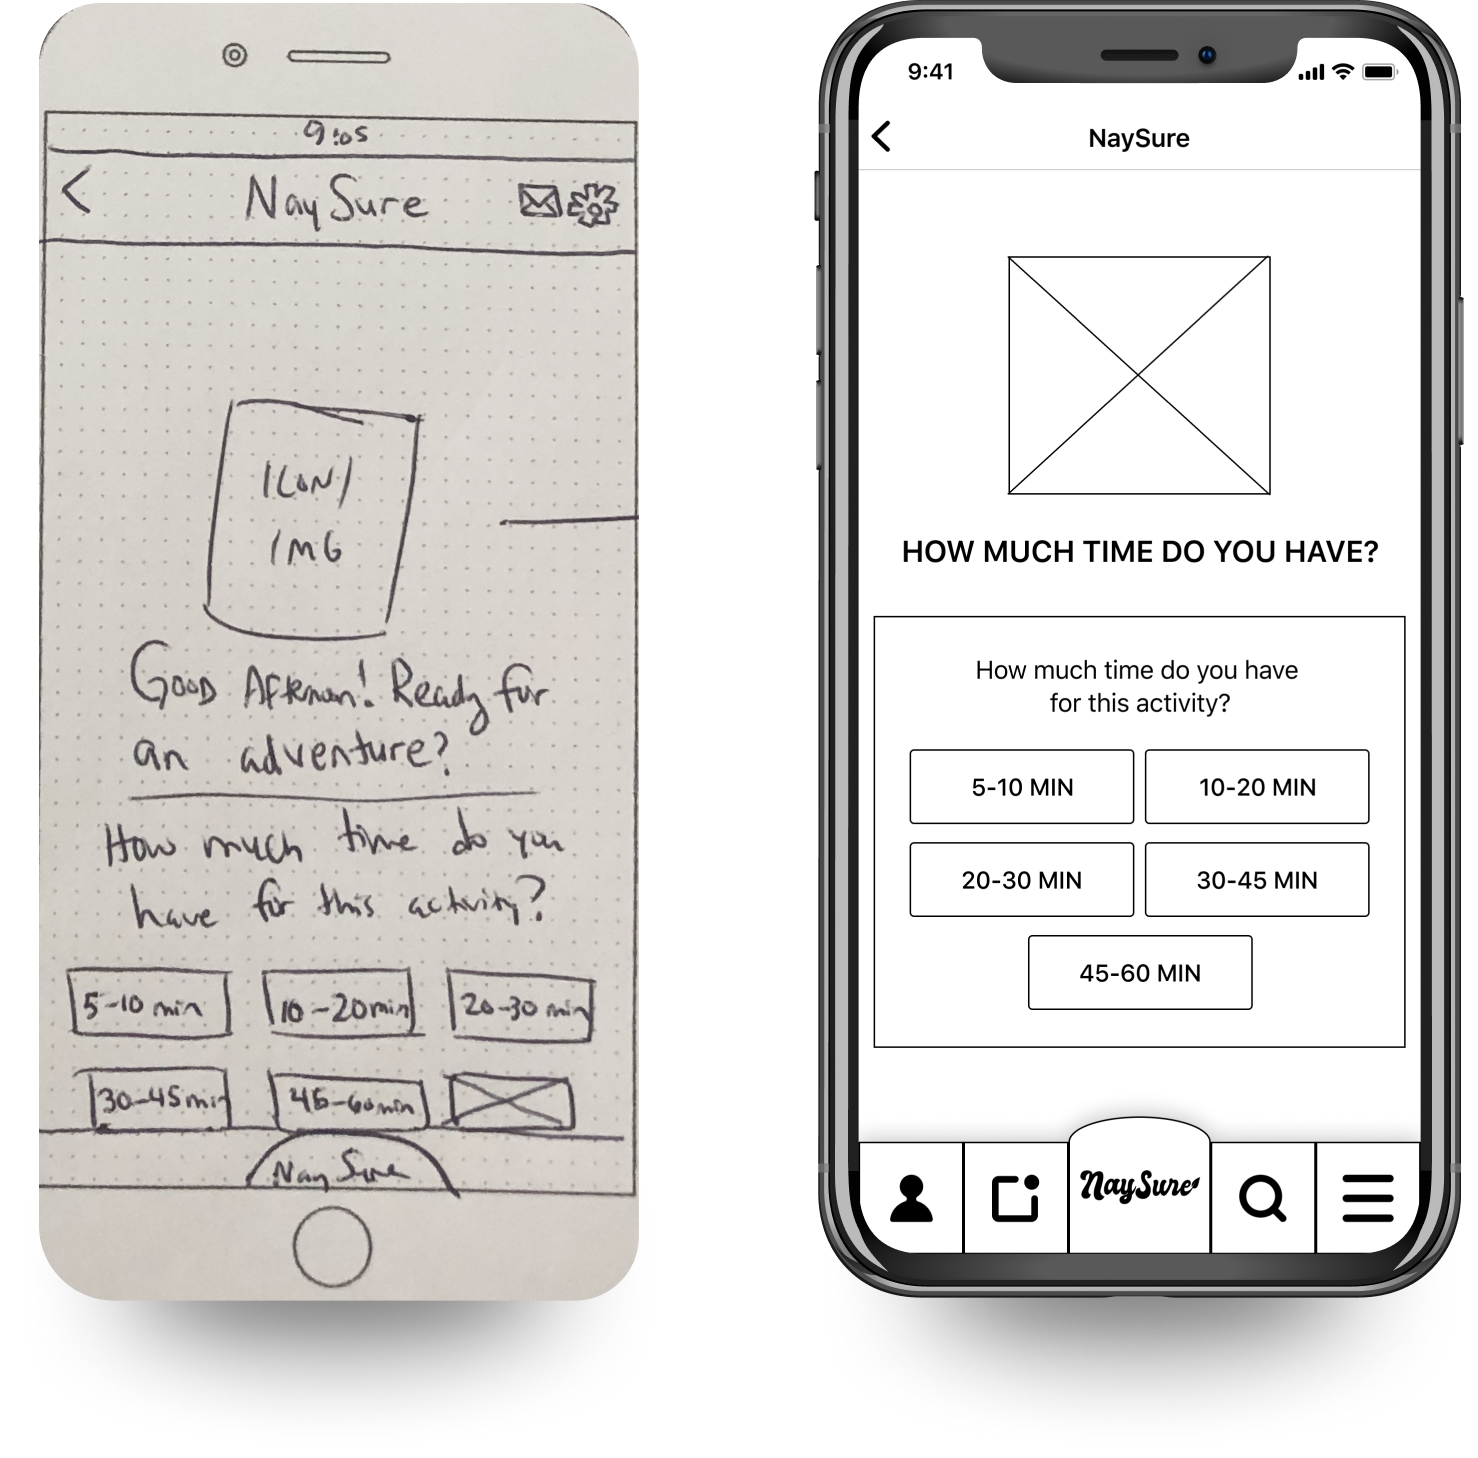 9:05
NaySure
ICON/
IMG
Good Afternoon! Ready for
an adventure?
How much time do you
have for this activity?
5-10 min
10-20 min
20-30 min
30-45 min
45-60 min
NaySure
9:41
NaySure
HOW MUCH TIME DO YOU HAVE?
How much time do you have
for this activity?
5-10 MIN
10-20 MIN
20-30 MIN
30-45 MIN
45-60 MIN
NaySure